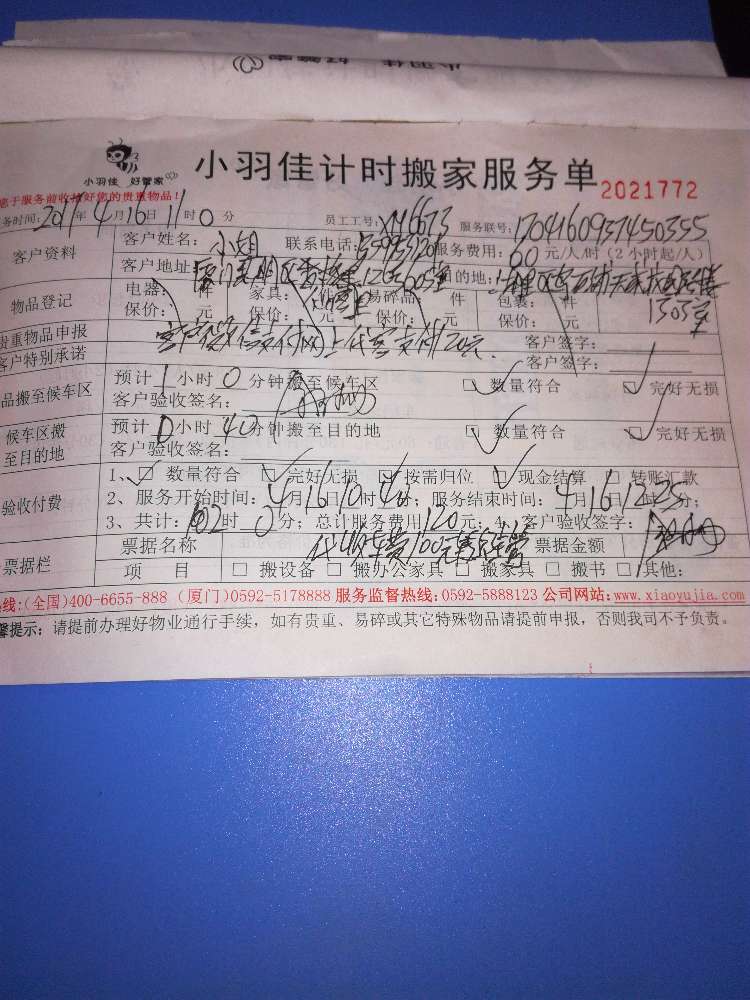 小羽佳 好管家
小羽佳计时搬家服务单 2021772
于服务前收拾好您的贵重物品！
务时间：2017年4月16日11时0分 员工工号：XM6673 服务联号：17041609371450355
客户资料 客户姓名：小姐 联系电话： 服务费用：60元/人/时（2小时起/人）
客户地址：厦门思明区 目的地：
物品登记 电器： 件 家具： 件 易碎品： 件 包裹： 件 1303室
保价： 元 保价： 元 保价： 元 保价： 元
贵重物品申报 客户签字：
客户微信支付 网上代客支付20元.
客户特别承诺 客户签字：
品搬至候车区 预计1小时0分钟搬至候车区 □ 数量符合 □ 完好无损
客户验收签名：
候车区搬至目的地 预计0小时40分钟搬至目的地 □ 数量符合 □ 完好无损
客户验收签名：
验收付费 1、□ 数量符合 □ 完好无损 □ 按需归位 □ 现金结算 □ 转账汇款
2、服务开始时间：4月16日10时 分；服务结束时间：4月16日12时25分；
3、共计：02时0分；总计服务费用120元；4、客户验收签字：
票据栏 票据名称 代收车费100元 票据金额
项 目 □ 搬设备 □ 搬办公家具 □ 搬家具 □ 搬书 □ 其他：
线：(全国)400-6655-888 (厦门)0592-5178888 服务监督热线：0592-5888123 公司网站：www.xiaoyujia.com
馨提示：请提前办理好物业通行手续，如有贵重、易碎或其它特殊物品请提前申报，否则我司不予负责。